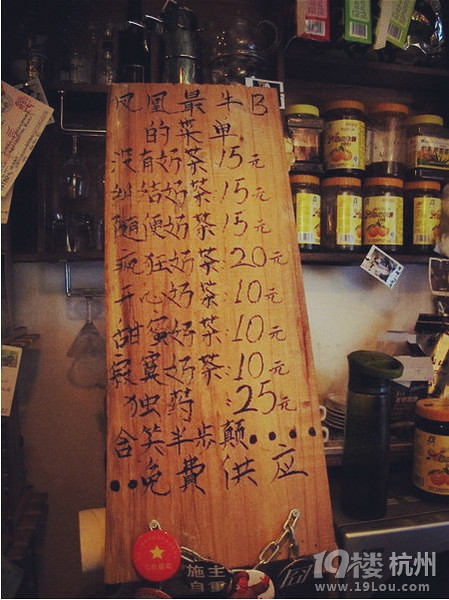 凤凰最牛B
的菜单
没有奶茶:15元
纠结奶茶:15元
随便奶茶:15元
疯狂奶茶:20元
开心奶茶:10元
甜蜜奶茶:10元
寂寞奶茶:10元
独特:25元
含笑半步颠••••
••免費供应
施主
自重
19楼 杭州
www.19lou.com